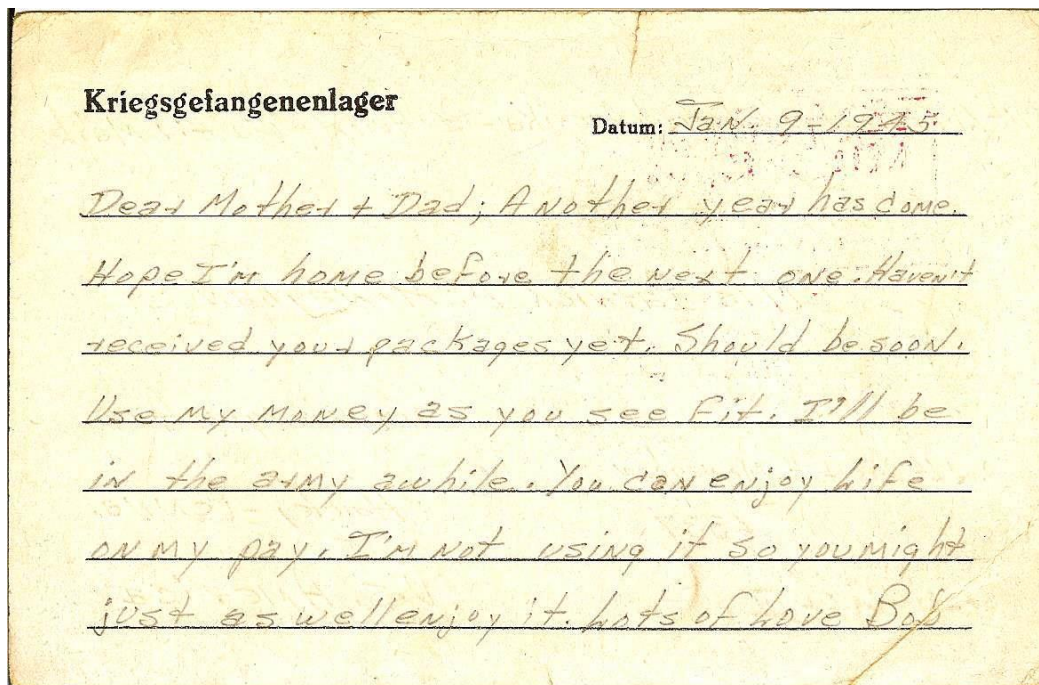 Kriegsgefangenenlager
Datum: Jan. 9-1945.
Dear Mother + Dad; Another year has come.
Hope I'm home before the next one. Haven't
received your packages yet. Should be soon.
Use my money as you see fit. I'll be
in the army awhile. You can enjoy life
on my pay. I'm not using it so you might
just as well enjoy it. Lots of Love Bob